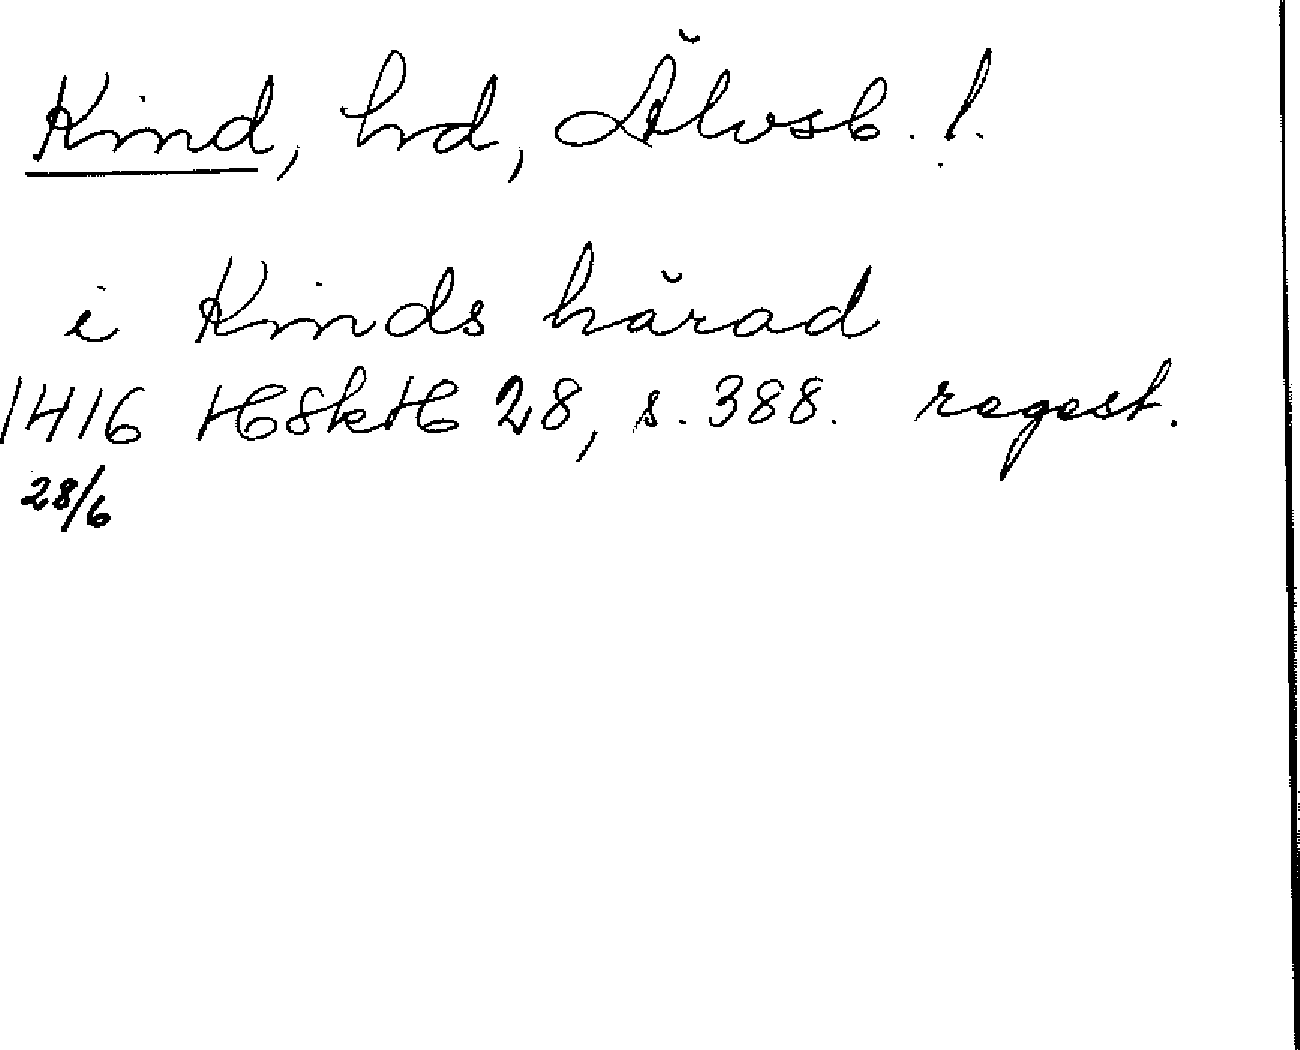 Kind, hd, Älvsb. l.
i Kinds härad
1416 HSkH 28, s. 388. regest.
28/6